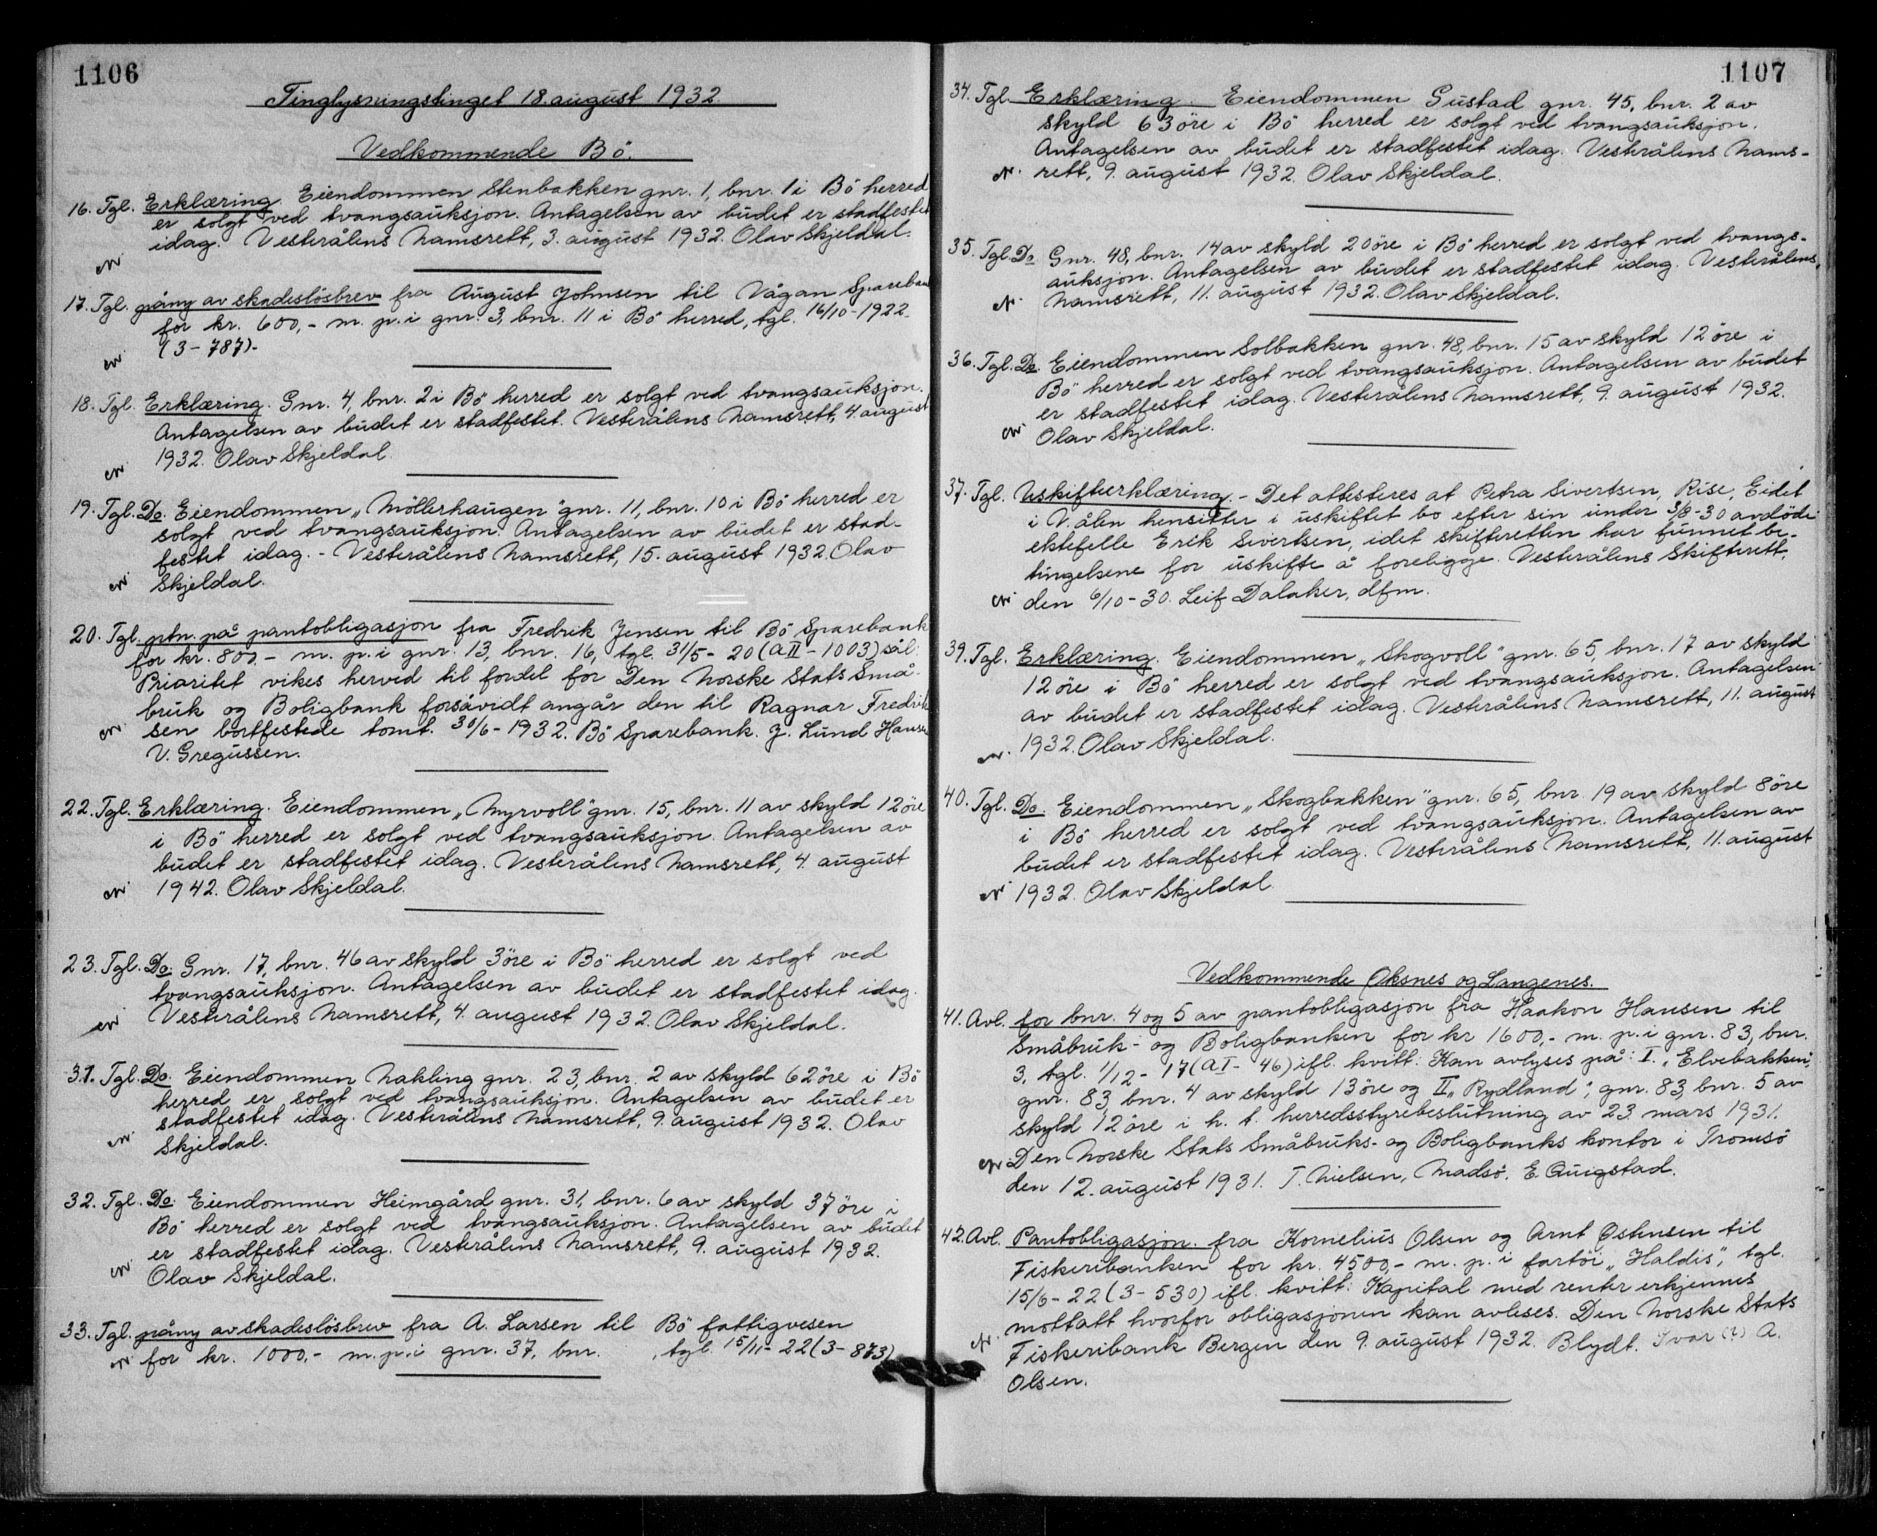 1106
Tinglysningstinget 18. august 1932.
Vedkommende Bö.
16. Tgl. Erklæring. Eiendommen Stenbakken gnr. 1, bnr. 1 i Bö herred
er solgt ved tvangsauksjon. Antagelsen av budet er stadfestet
idag. Vesterålens Namsrett, 3. august 1932. Olav Skjeldal.
17. Tgl. påny av skadeslösbrev fra August Johnsen til Vågan Spareban
for kr. 600,- m. p. i gnr. 3, bnr. 11 i Bö herred, tgl. 16/10-1922.
(3-787).
18. Tgl. Erklæring. Gnr. 4, bnr. 2 i Bö herred er solgt ved tvangsauksjon.
Antagelsen av budet er stadfestet. Vesterålens Namsrett, 4 august
1932. Olav Skjeldal.
19. Tgl. Do. Eiendommen „Möllerhaugen" gnr. 11, bnr. 10 i Bö herred er
solgt ved tvangsauksjon. Antagelsen av budet er stad-
festet idag. - Vesterålens Namsrett, 15. august 1932. Olav
Skjeldal.
20. Tgl. ptn. på pantobligasjon fra Fredrik Jensen til Bö Sparebank
for kr. 800,- m. p. i gnr. 13, bnr. 16, tgl. 31/5-20 (A II-1003) sål:
Prioritet vikes herved til fordel for Den Norske Stats Små-
bruk og Boligbank forsåvidt angår den til Ragnar Fredrik
sen bortfestede tomt. 30/6-1932. Bö Sparebank. J. Lund Hansen
V. Gregussen.
22. Tgl. Erklæring. Eiendommen „Myrvoll" gnr. 15, bnr. 11 av skyld 12 öre
i Bö herred er solgt ved tvangsauksjon. Antagelsen av
budet er stadfestet idag. Vesterålens Namsrett, 4. august
1942. Olav Skjeldal.
23. Tgl. Do. Gnr. 17, bnr. 46 av skyld 3 öre i Bö herred er solgt ved
tvangsauksjon. Antagelsen av budet er stadfestet idag.
Vesterålens Namsrett, 4. august 1932. Olav Skjeldal.
31. Tgl. Do. Eiendommen Nakling gnr. 23, bnr. 2 av skyld 62 öre i Bö
herred er solgt ved tvangsauksjon. Antagelsen av budet er
stadfestet idag. Vesterålens Namsrett, 9. august 1932. Olav
Skjeldal.
32. Tgl. Do. Eiendommen Heimgård gnr. 31, bnr. 6 av skyld 37 öre i
Bö herred er solgt ved tvangsauksjon. Antagelsen av budet
er stadfestet idag. Vesterålens Namsrett, 9. august 1932.
Olav Skjeldal.
33. Tgl. påny av skadeslösbrev fra A. Larsen til Bö fattigvesen
for kr. 1000,- m. p. i gnr. 37, bnr. , tgl. 15/11-22 (3-873)
1107
34. Tgl. Erklæring. Eiendommen Gustad gnr. 45, bnr. 2 av
skyld 63 öre i Bö herred er solgt ved tvangsauksjon.
Antagelsen av budet er stadfestet idag. Vesterålens Nams-
rett, 9. august 1932. Olav Skjeldal.
35. Tgl. Do Gnr. 48, bnr. 14 av skyld 20 öre i Bö herred er solgt ved tvangs-
auksjon. Antagelsen av budet er stadfestet idag. Vesterålens
Namsrett, 11. august 1932. Olav Skjeldal.
36. Tgl. Do. Eiendommen Solbakken gnr. 48, bnr. 15 av skyld 12 öre i
Bö herred er solgt ved tvangsauksjon. Antagelsen av budet
er stadfestet idag. Vesterålens Namsrett, 9. august 1932.
Olav Skjeldal.
37. Tgl. Uskifteerklæring. - Det attesteres at Petra Sivertsen, Rise, Eidet
i V.ålen hensitter i uskiftet bo efter sin under 3/8-30 avdöde
ektefelle Erik Sivertsen, idet skifteretten har funnet be-
tingelsene for uskifte å foreligge. Vesterålens Skifterett,
den 6/10-30. Leif Dalaker, dfm.
39. Tgl. Erklæring. Eiendommen „Skogvoll" gnr. 65, bnr. 17 av skyld
12 öre i Bö herred er solgt ved tvangsauksjon. Antagelsen
av budet er stadfestet idag. Vesterålens Namsrett, 11. august
1932. Olav Skjeldal.
40. Tgl. Do. Eiendommen „Skogbakken" gnr. 65, bnr. 19 av skyld 8 öre
i Bö herred er solgt ved tvangsauksjon. Antagelsen av
budet er stadfestet idag. Vesterålens Namsrett, 11. august
1932. Olav Skjeldal.
Vedkommende Öksnes og Langenes.
41. Avl. for bnr. 4 og 5 av pantobligasjon fra Haakon Hansen til
Småbruk- og Boligbanken for kr 1600,- m. p. i gnr. 83, bnr.
3, tgl. 1/12-17 (A I-46) ifl. kvitt: Kan avlyses på: I. „Elvebakken",
gnr. 83, bnr. 4 av skyld 13 öre og II „Rydland", gnr. 83, bnr. 5 av
skyld 12 öre i h. t. herredsstyrebeslutning av 23 mars 1931.
Den Norske Stats Småbruks- og Boligbanks kontor i Tromsö
den 12. august 1931. T. Nielsen, Madsö. E. Quigstad.
42. Avl. Pantobligasjon fra Kornelius Olsen og Arnt Östnsen til
Fiskeribanken for kr. 4500,- m. p. i fartöi „Haldis", tgl.
15/6-22 (3-530) ifl. kvitt: Kapital med renter erkjennes
mottatt hvorfor obligasjonen kan avleses. Den Norske Stats
Fiskeribank Bergen den 9. august 1932. Blydt. Ivar (?) A.
Olsen.